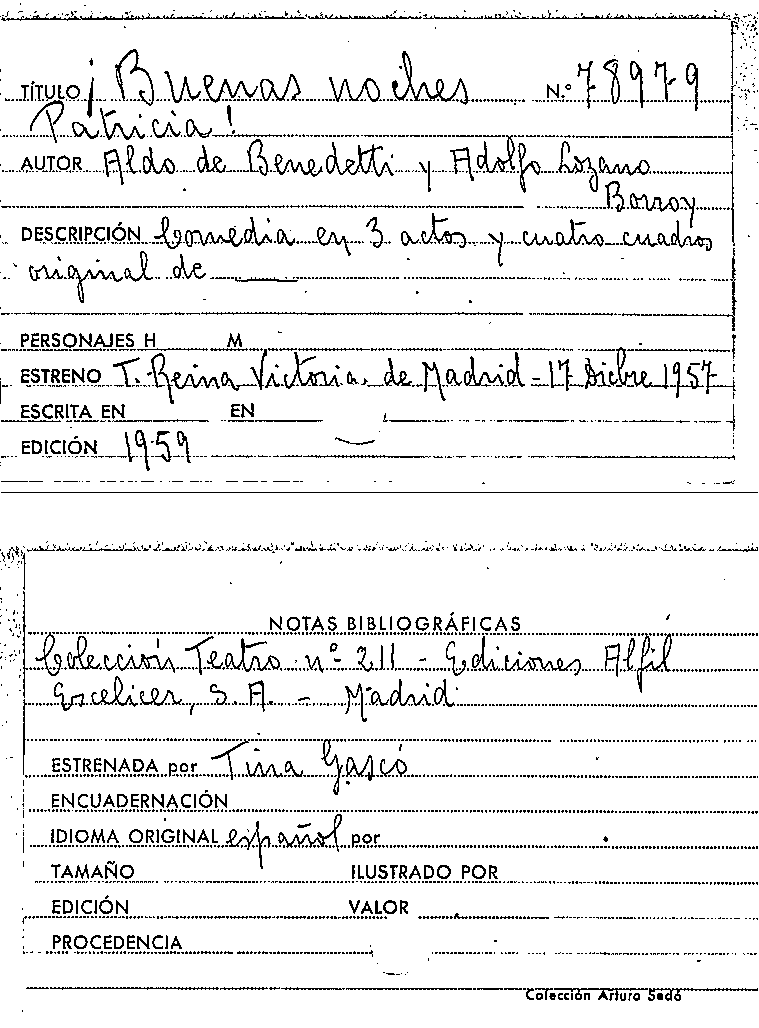 TÍTULO ¡Buenas noches N.º 78979
Patricia!
AUTOR Aldo de Benedetti y Adolfo Lozano
Borroy
DESCRIPCIÓN Comedia en 3 actos y cuatro cuadros
original de
PERSONAJES H M
ESTRENO T. Reina Victoria, de Madrid - 17 Dicbre 1957
ESCRITA EN EN
EDICIÓN 1959
NOTAS BIBLIOGRÁFICAS
Colección Teatro nº 211 - Ediciones Alfil
Escelicer, S. A. - Madrid
ESTRENADA por Tina Gascó
ENCUADERNACIÓN
IDIOMA ORIGINAL español por
TAMAÑO ILUSTRADO POR
EDICIÓN VALOR
PROCEDENCIA
Colección Arturo Sedó